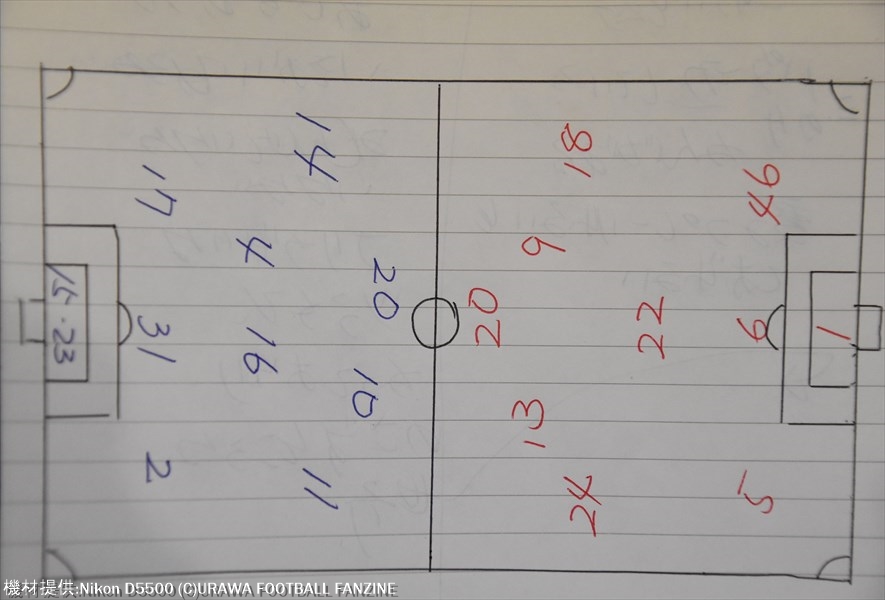 14
17
4
20
15・23
31
16
10
2
11
18
46
9
20
22
6
1
13
24
5
機材提供:Nikon D5500 (C)URAWA FOOTBALL FANZINE